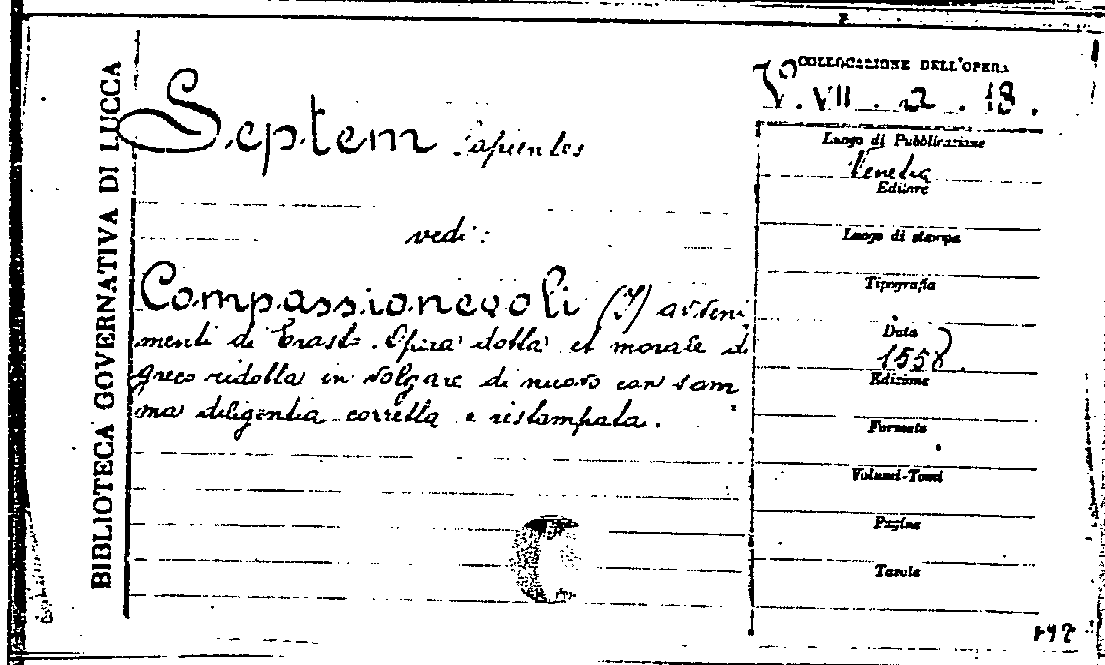 BIBLIOTECA GOVERNATIVA DI LUCCA
COLLOCAZIONE DELL'OPERA
V. VII. 2. 18.
Septem Sapientes
vedi:
Compassionevoli (I) avveni
menti di Erasto. Opera dotta et morale di
greco ridotta in volgare di nuovo con som
ma diligentia corretta e ristampata.
Luogo di Pubblicazione
Venezia
Editore
Luogo di stampa
Tipografia
Data
1558.
Edizione
Formato
Volumi-Tomi
Pagine
Tavole